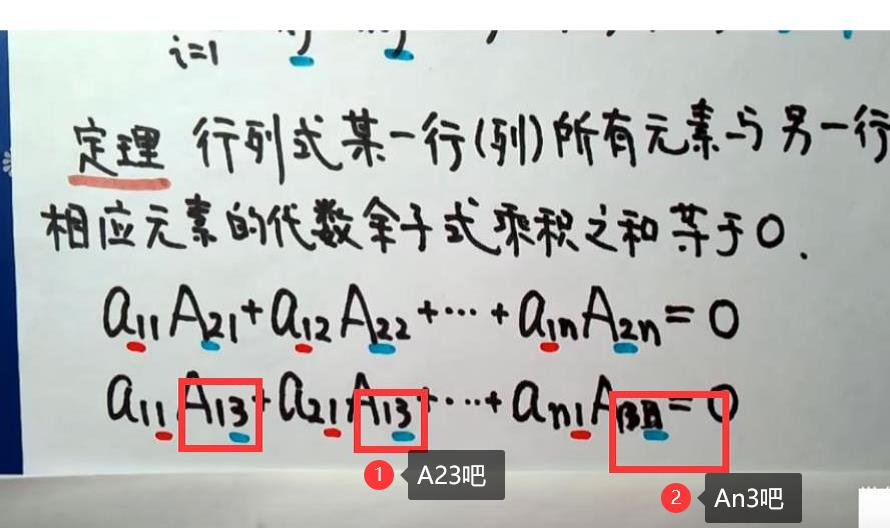 i=1
定理 行列式某一行(列)所有元素与另一行
相应元素的代数余子式乘积之和等于0.
a11A21+a12A22+…+a1nA2n=0
a11A13+a21A13+…+an1A13n=0
1 A23吧
2 An3吧